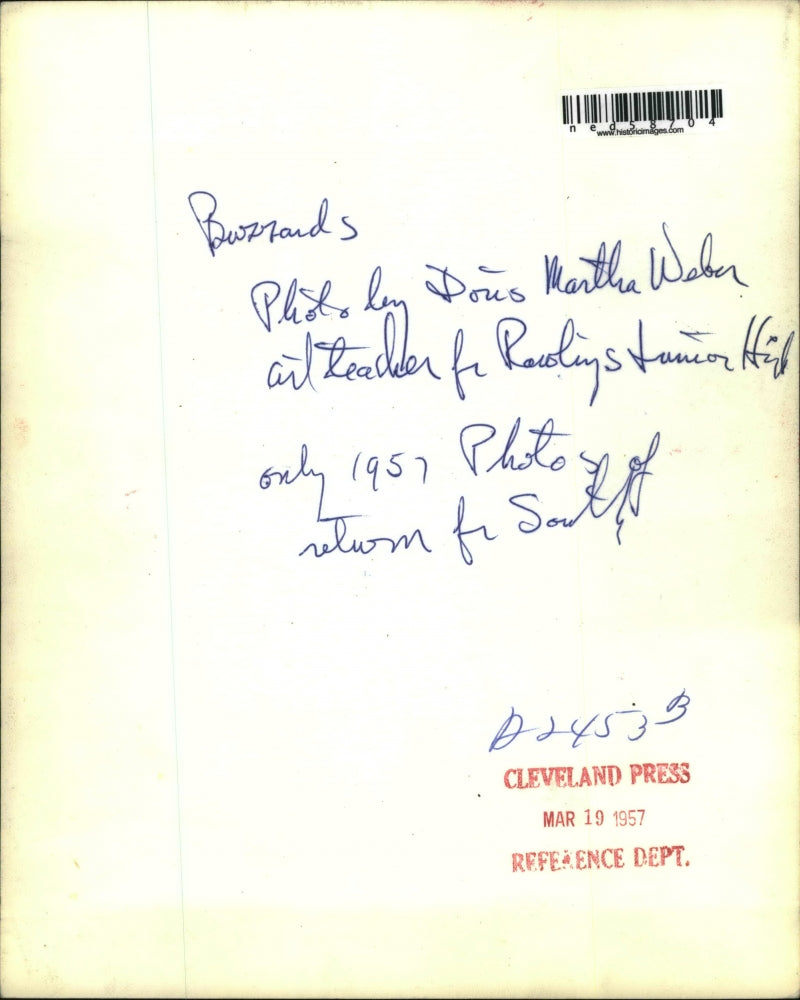 ned58704
www.historicimages.com
Buzzards
Photo by Doris Martha Weber
art teacher fr Rawlings Junior High
only 1957 Photos of
return fr South
A2453 B
CLEVELAND PRESS
MAR 19 1957
REFERENCE DEPT.